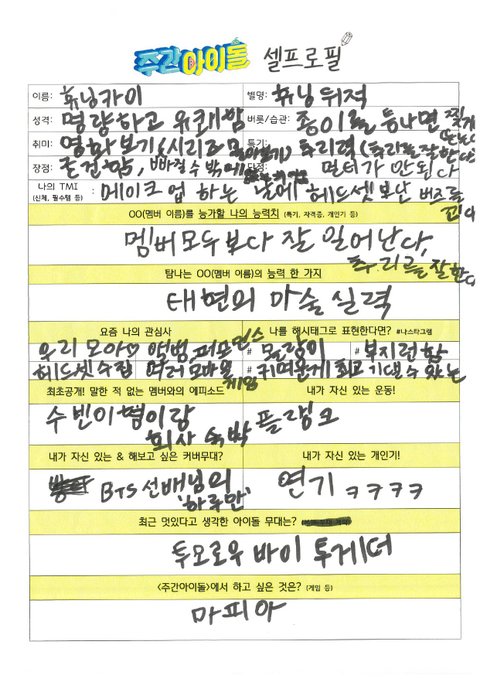 주간아이돌 셀프로필
이름: 휴닝카이 별명: 휴닝위적
성격: 명량하고 유쾌함 버릇/습관: 종이를 등나면 찢게 된다
취미: 영화보기(시리즈 몰아보기) 특기: 추리력(추리를 잘한다)
장점: 근건함, 빠질 수 밖에 단점: 멀티가 안된다
나의 TMI (신체, 필수템 등) : 메이크업 하는 날에 헤드셋보단 버즈를 낀다
OO(멤버 이름)를 능가할 나의 능력치 (특기, 자격증, 개인기 등)
멤버모두보다 잘 일어난다, 추리를 잘한다
탐나는 OO(멤버 이름)의 능력 한 가지
태현의 마술실력
요즘 나의 관심사 나를 해시태그로 표현한다면? #나스타그램
우리 모아♡ 앨범, 퍼포먼스 # 말랑이 # 부지런함
헤드셋수집 여러모바일게임 #귀여운게 최고 #기댈 수 있는
최초공개! 말한 적 없는 멤버와의 에피소드 내가 자신 있는 운동!
수빈이형이랑 회사 숙박 플랭크
내가 자신 있는 & 해보고 싶은 커버무대? 내가 자신 있는 개인기!
BTS선배님의 '하루만' 연기 ㅋㅋㅋㅋ
최근 멋있다고 생각한 아이돌 무대는?
투모로우 바이 투게더
<주간아이돌>에서 하고 싶은 것은? (게임 등)
마피아